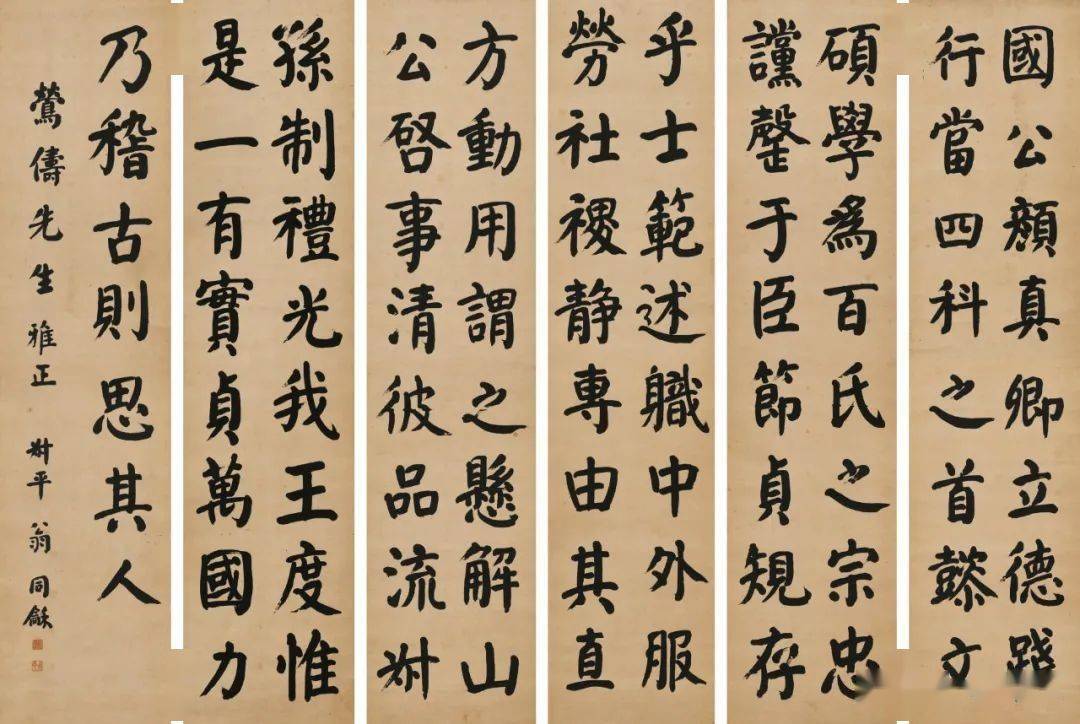 國公顔真卿立德踐
行當四科之首懿文
碩學為百氏之宗忠
讜罄于臣節貞規存
乎士範述職中外服
勞社稷静專由其直
方動用謂之懸解山
公啓事清彼品流叔
孫制禮光我王度惟
是一有實貞萬國力
乃稽古則思其人
鶯儔先生雅正 叔平翁同龢